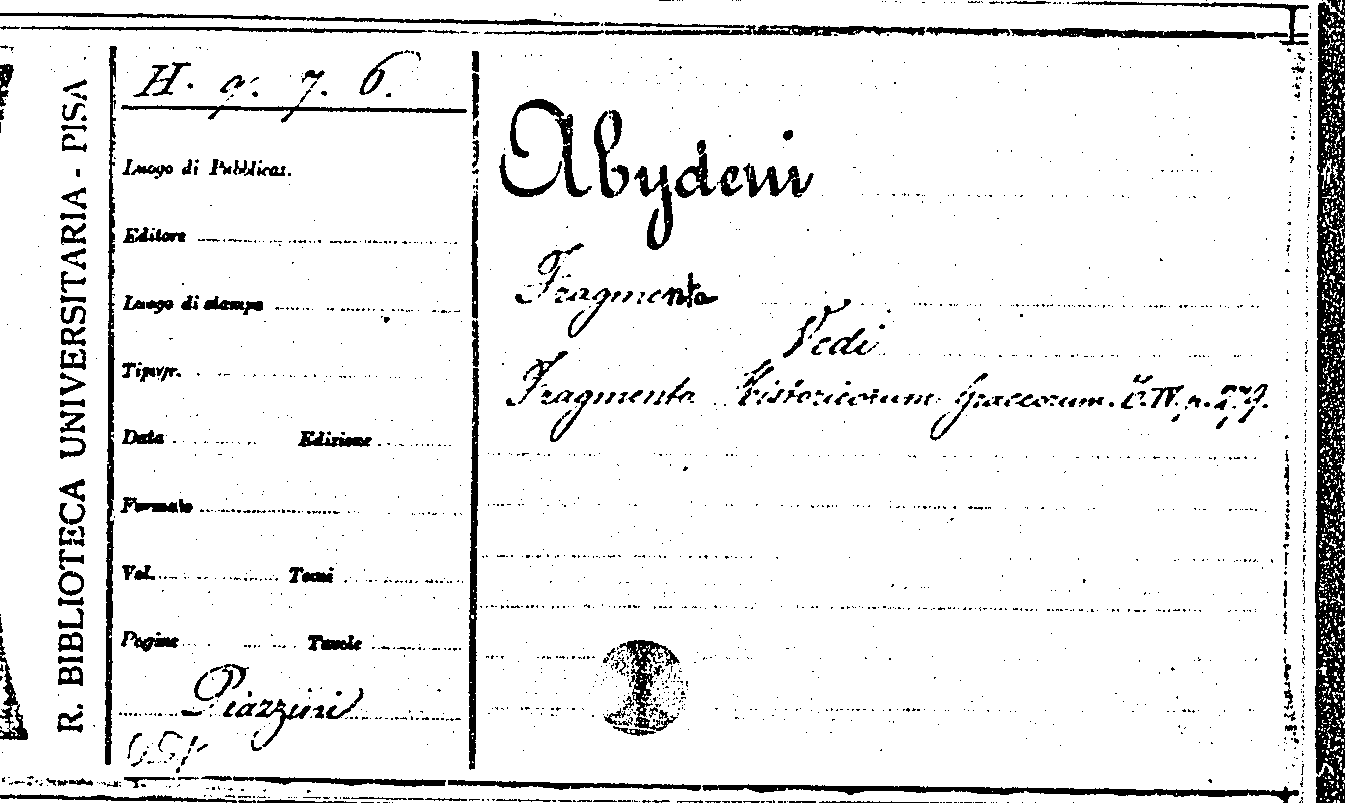 R. BIBLIOTECA UNIVERSITARIA - PISA
H. q. 7. 6.
Luogo di Pubblicaz.
Editore
Luogo di stampa
Tipogr.
Data Edizione
Formato
Vol. Tomi
Pagine Tavole
Piazzini
Abydeni
Fragmenta
Vedi
Fragmenta Historicorum Graecorum. t. IV. p. 279.